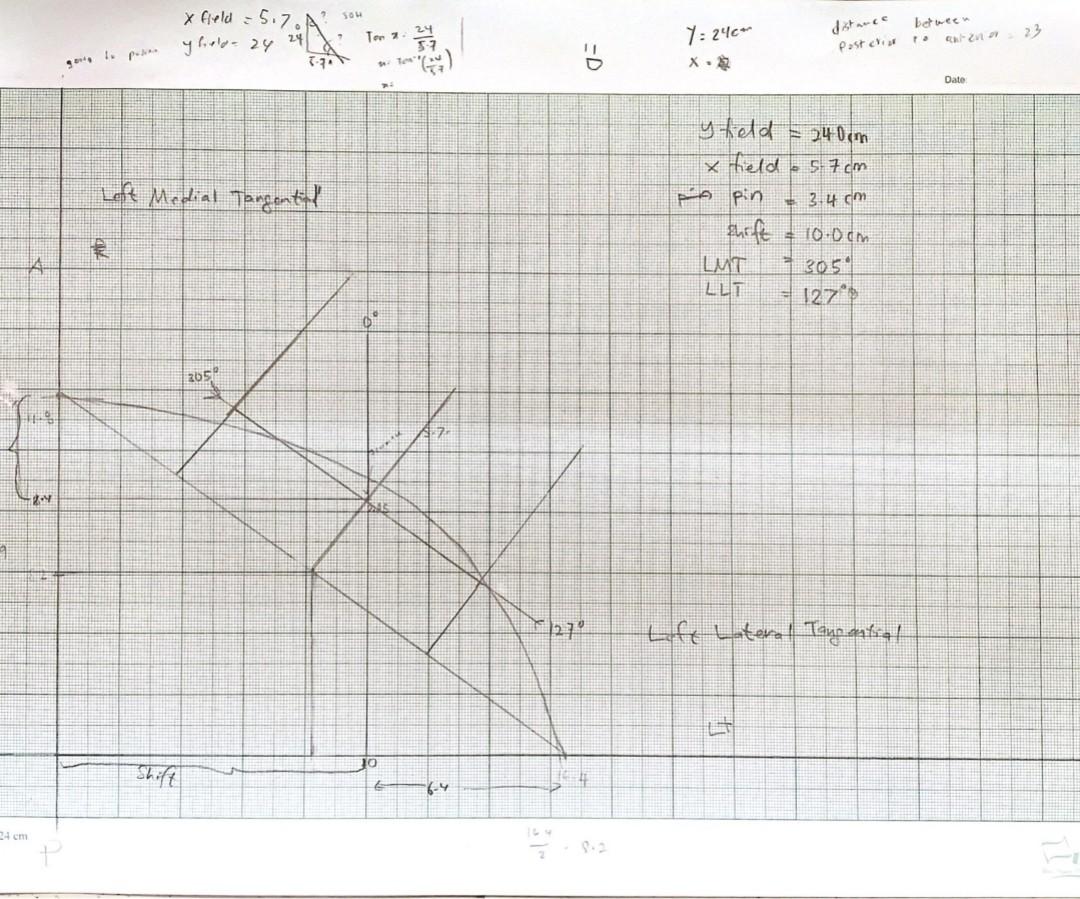 X field = 5.7
y field = 24
24
?
?
5.7
SOH
Tan x = 24/5.7
x = Tan⁻¹(24/5.7)
x =
Y = 24cm
X =
distance between
Posterior to anterior = 23
Date:
y field = 24.0cm
x field = 5.7cm
pin = 3.4 cm
Shift = 10.0cm
LMT = 305°
LLT = 127°
Left Medial Tangential
A
0°
305°
11.8
5.7
8.4
127°
Left Lateral Tangential
Lt
10
Shift
6.4
16.4
24 cm
P
16.4/2 = 8.2